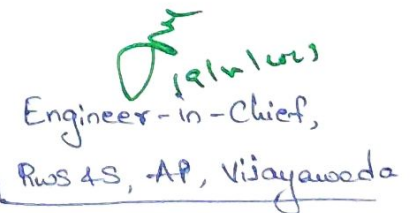 Engineer-in-Chief,
RWS &S, AP, Vijayawada